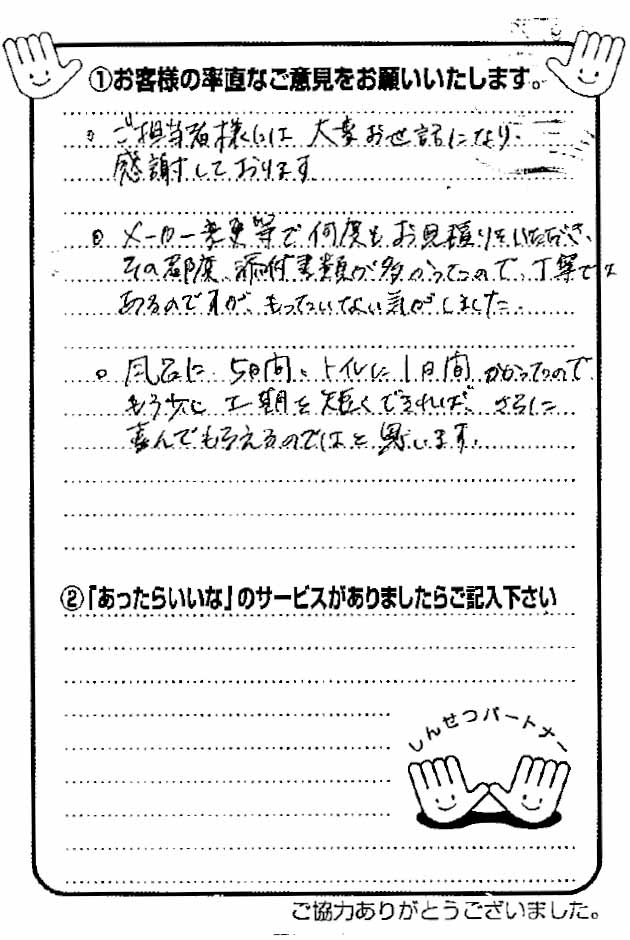 ①お客様の率直なご意見をお願いいたします。
。ご担当者様には 大変お世話になり、
感謝しております。
。メーカー変更等で何度もお見積りをいただき、
その都度、添付書類が多かったので、丁寧では
あるのですが、もったいない気がしました。
。風呂に 5日間、トイレに 1日間 かかったので
もう少し 工期を短くできれば、さらに
喜んでもらえるのではと思います。
②「あったらいいな」のサービスがありましたらご記入下さい
しんせつパートナー
ご協力ありがとうございました。